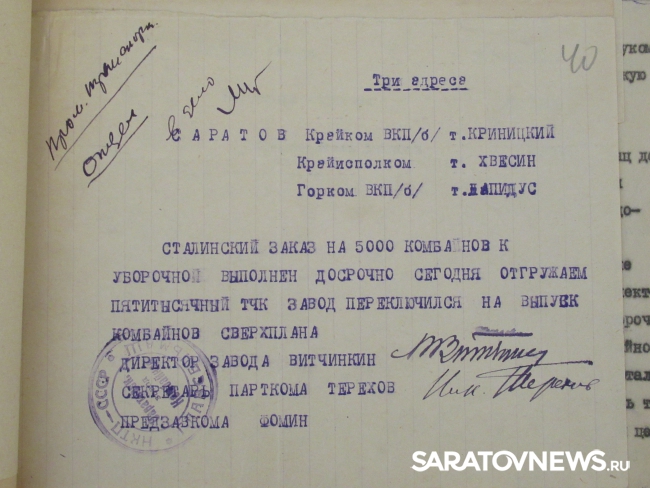 Пром. транспорт.
Отдел
в дело
40
Три адреса
САРАТОВ Крайком ВКП/б/ т.КРИНИЦКИЙ
Крайисполком т. ХВЕСИН
Горком ВКП/б/ т.ЛАПИДУС
СТАЛИНСКИЙ ЗАКАЗ НА 5000 КОМБАЙНОВ К
УБОРОЧНОЙ ВЫПОЛНЕН ДОСРОЧНО СЕГОДНЯ ОТГРУЖАЕМ
ПЯТИТЫСЯЧНЫЙ ТЧК ЗАВОД ПЕРЕКЛЮЧИЛСЯ НА ВЫПУСК
КОМБАЙНОВ СВЕРХПЛАНА
ДИРЕКТОР ЗАВОДА ВИТЧИНКИН
СЕКРЕТАРЬ ПАРТКОМА ТЕРЕХОВ
Ник. Терехов
ПРЕДЗАВКОМА ФОМИН
НКТП-СССР
SARATOVNEWS.RU